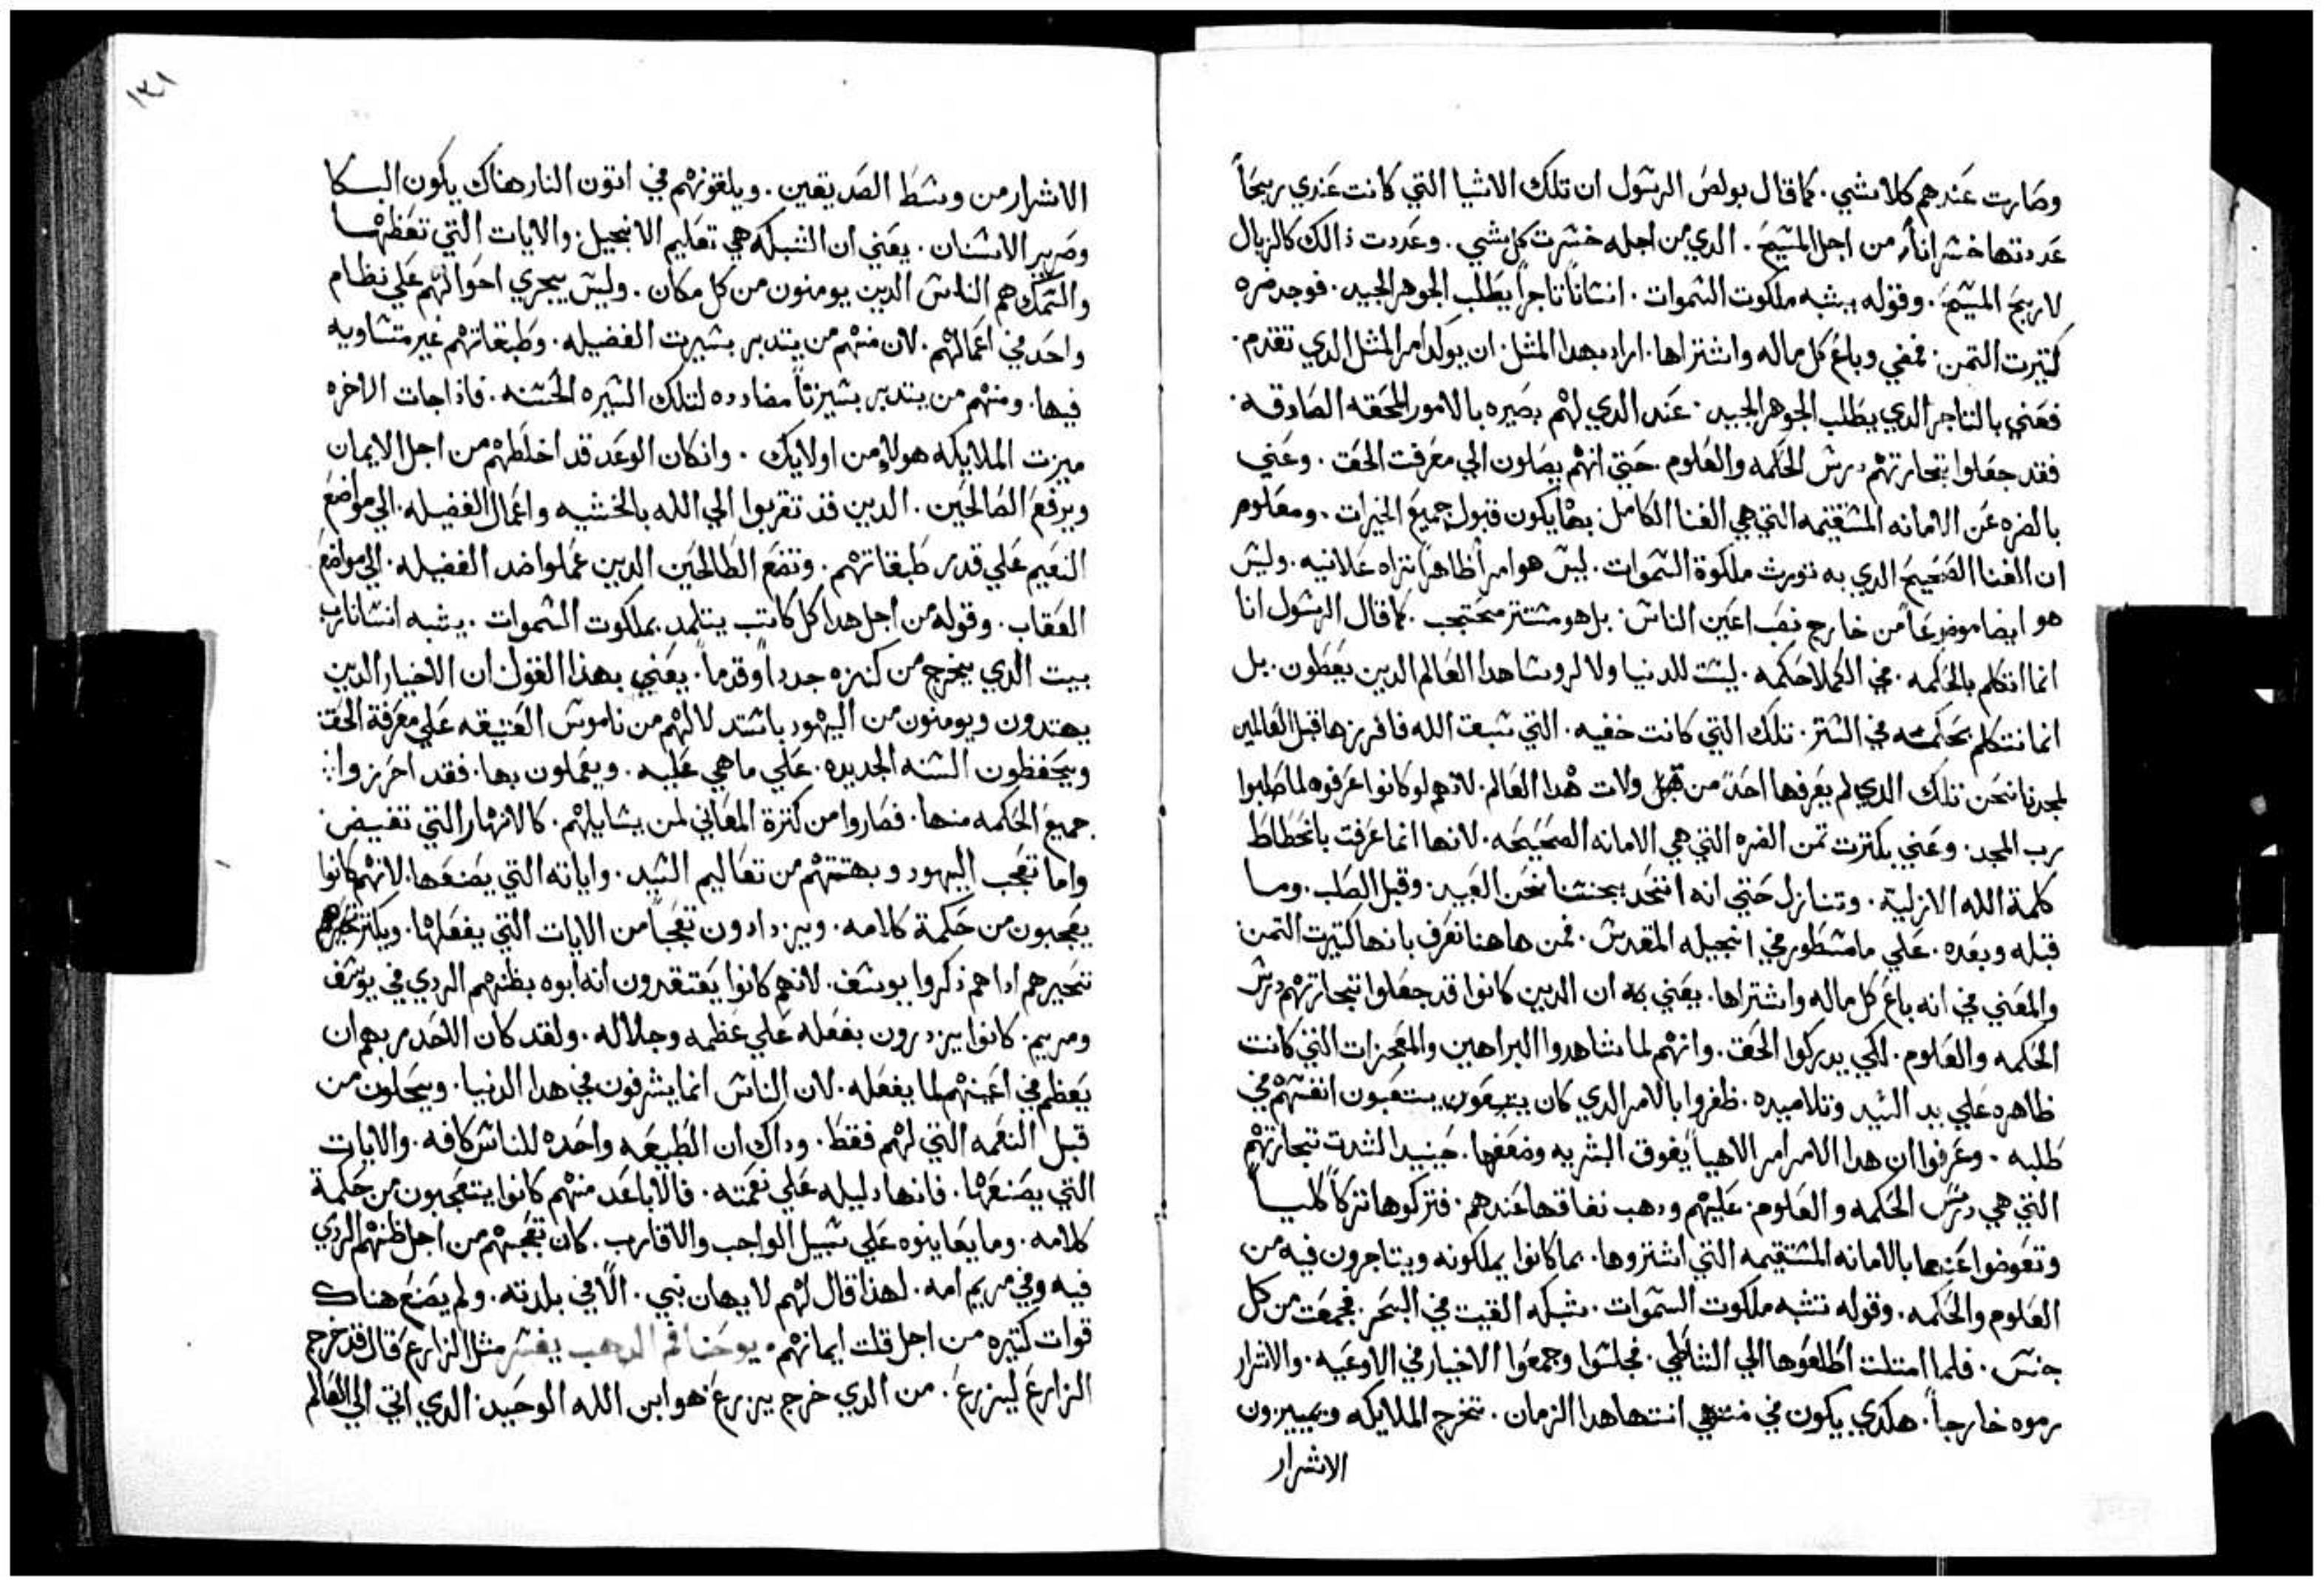 وصارت عندهم كلاشي. كما قال بولص الرسول ان تلك الاشيا التي كانت عندي ربحاً
عددتها خسراناً. من اجل المسيح. الدي من اجله خسرت كل شي. وعددت ذالك كالزبال
لاربح المسيح. وقوله يشبه ملكوت السموات. انساناً تاجراً يطلب الجوهر الجيد. فوجد دره
كتيرت التمن. فمضي وباع كل ماله واشتراها. اراد بهدا المتل. ان يوكد امر المتل الدي تقدم.
فعني بالتاجر الدي يطلب الجوهر الجيد. عند الدي لهم بصيره بالامور المحقه الصادقه.
فقد جعلوا تجارتهم درس الحكمه والعلوم. حتي انهم يصلون الي معرفت الحق. وعني
بالدره عن الامانه المستقيمه التي هي الغنا الكامل. بها يكون قبول جميع الخيرات. ومعلوم
ان الغنا الصحيح الدي به تورث ملكوة السموات. ليس هو امراً ظاهراً تراه علانيه. وليس
هو ايضا موضوعاً من خارج نصب اعين الناس. بل هو مستتر محتجب. كما قال الرسول انا
انما اتكلم بالحكمه. في الكملا حكمه. ليست للدنيا ولا لروسا هدا العالم الدين يبطلون. بل
انما نتكلم بحكمته في الستر. تلك التي كانت خفيه. التي سبق الله فافرزها قبل العالمين
لمجدنا نحن تلك الدي لم يعرفها احد من قبل ولات هدا العالم. لانهم لو كانوا عرفوه لما صلبوا
رب المجد. وعني بكترت تمن الدره التي هي الامانه الصحيحه. لانها انما عرفت بانحطاط
كلمة الله الازلية. وتنازل حتي انه اتحد بجنسنا نحن العبيد. وقبل الصلب. وما
قبله وبعده. علي ما مسطور في انجيله المقدس. فمن هاهنا نعرف بانها كتيرت التمن
والمعني في انه باع كل ماله واشتراها. يعني به ان الدين كانوا قد جعلوا تجارتهم درس
الحكمه والعلوم. لكي يدركوا الحق. وانهم لما شاهدوا البراهين والمعجزات التي كانت
ظاهره علي يد السيد وتلاميده. ظفروا بالامر الدي كان يتعبون انفسهم في
طلبه. وعرفوا ان هدا الامر امر الاهياً يفوق البشريه وضعفها. حينيد الشدت تجارتهم
التي هي درس الحكمه والعلوم. عليهم ودهب نفاقها عندهم. فتركوها تركاً كلياً
وتعوضوا عنها بالامانه المستقيمه التي اشتروها. بما كانوا يملكونه ويتاجرون فيه من
العلوم والحكمه. وقوله تشبه ملكوت السموات. شبكه القيت في البحر. فجمعت من كل
جنس. فلما امتلت اطلعوها الي الشاطي. فجلسوا وجمعوا الاخيار في الاوعيه. والاشرار
رموه خارجاً. هكدي يكون في منتهي انتها هدا الزمان. تخرج الملايكه ويميزون
الاشرار
١٣١
الاشرار من وسط الصديقين. ويلقونهم في اتون النار هناك يكون البكا
وصرير الاسنان. يعني ان الشبكه هي تعليم الانجيل. والايات التي تعظها
والسمك هم الناس الدين يومنون من كل مكان. وليس يجري احوالهم علي نظام
واحد في اعمالهم. لان منهم من يتدبر بسيرت الفضيله. وطبقاتهم غير متساويه
فيها. ومنهم من يتدبر بسيرتاً مضادده لتلك السيره الحسنه. فاذا جات الاخره
ميزت الملايكه هولاء من اولايك. وان كان الوعد قد اخلطهم من اجل الايمان
ويرفع الصالحين. الدين قد تقربوا الي الله بالخشيه واعمال الفضيله. الي مواضع
النعيم علي قدر طبقاتهم. وتضع الطالحين الدين عملوا ضد الفضيله. الي مواضع
العقاب. وقوله من اجل هدا كل كاتب يتلمد بملكوت السموات. يشبه انسانا رب
بيت الدي يخرج من كنزه جدداً وقدماً. يعني بهذا القول ان الاخيار الدين
يهتدون ويومنون من اليهود باستدلالهم من ناموس العتيقه علي معرفة الحق
ويحفظون السنه الجديده. علي ما هي عليه. ويعملون بها. فقد احرزوا
جميع الحكمه منها. فصاروا من كترة المعاني لمن يسايلهم. كالانهار التي تفيض.
واما تعجب اليهود وبهتتهم من تعاليم السيد. واياته التي يصنعها. لانهم كانوا
يعجبون من حكمة كلامه. ويزدادون تعجباً من الايات التي يفعلها. ويكتر تحيرهم
تحيرهم اداهم ذكروا يوسف. لانهم كانوا يعتقدون انه ابوه بظنهم الردي في يوسف
ومريم. كانوا يزدرون بفعله علي عظمه وجلاله. ولقد كان الاحد ربهم ان
يعظم في اعينهم لما يفعله. لان الناس انما يشرفون في هدا الدنيا. ويجلون من
قبل النعمه التي لهم فقط. وداك ان الطبيعه واحده للناس كافه. والايات
التي يصنعها. فانها دليله علي نعمته. فالاباعد منهم كانوا يتعجبون من حكمة
كلامه. وما يعاينوه علي سبيل الواجب والاقارب. كان تعجبهم من اجل ظنهم الردي
فيه وفي مريم امه. لهذا قال لهم لا يهان نبي. الا في بلدته. ولم يصنع هناك
قوات كتيره من اجل قلت ايمانهم. يوحنا فم الدهب يفسر مثل الزارع قال قد خرج
الزارع ليزرع. من الدي خرج يزرع هو ابن الله الوحيد. الدي اتي الي العالم